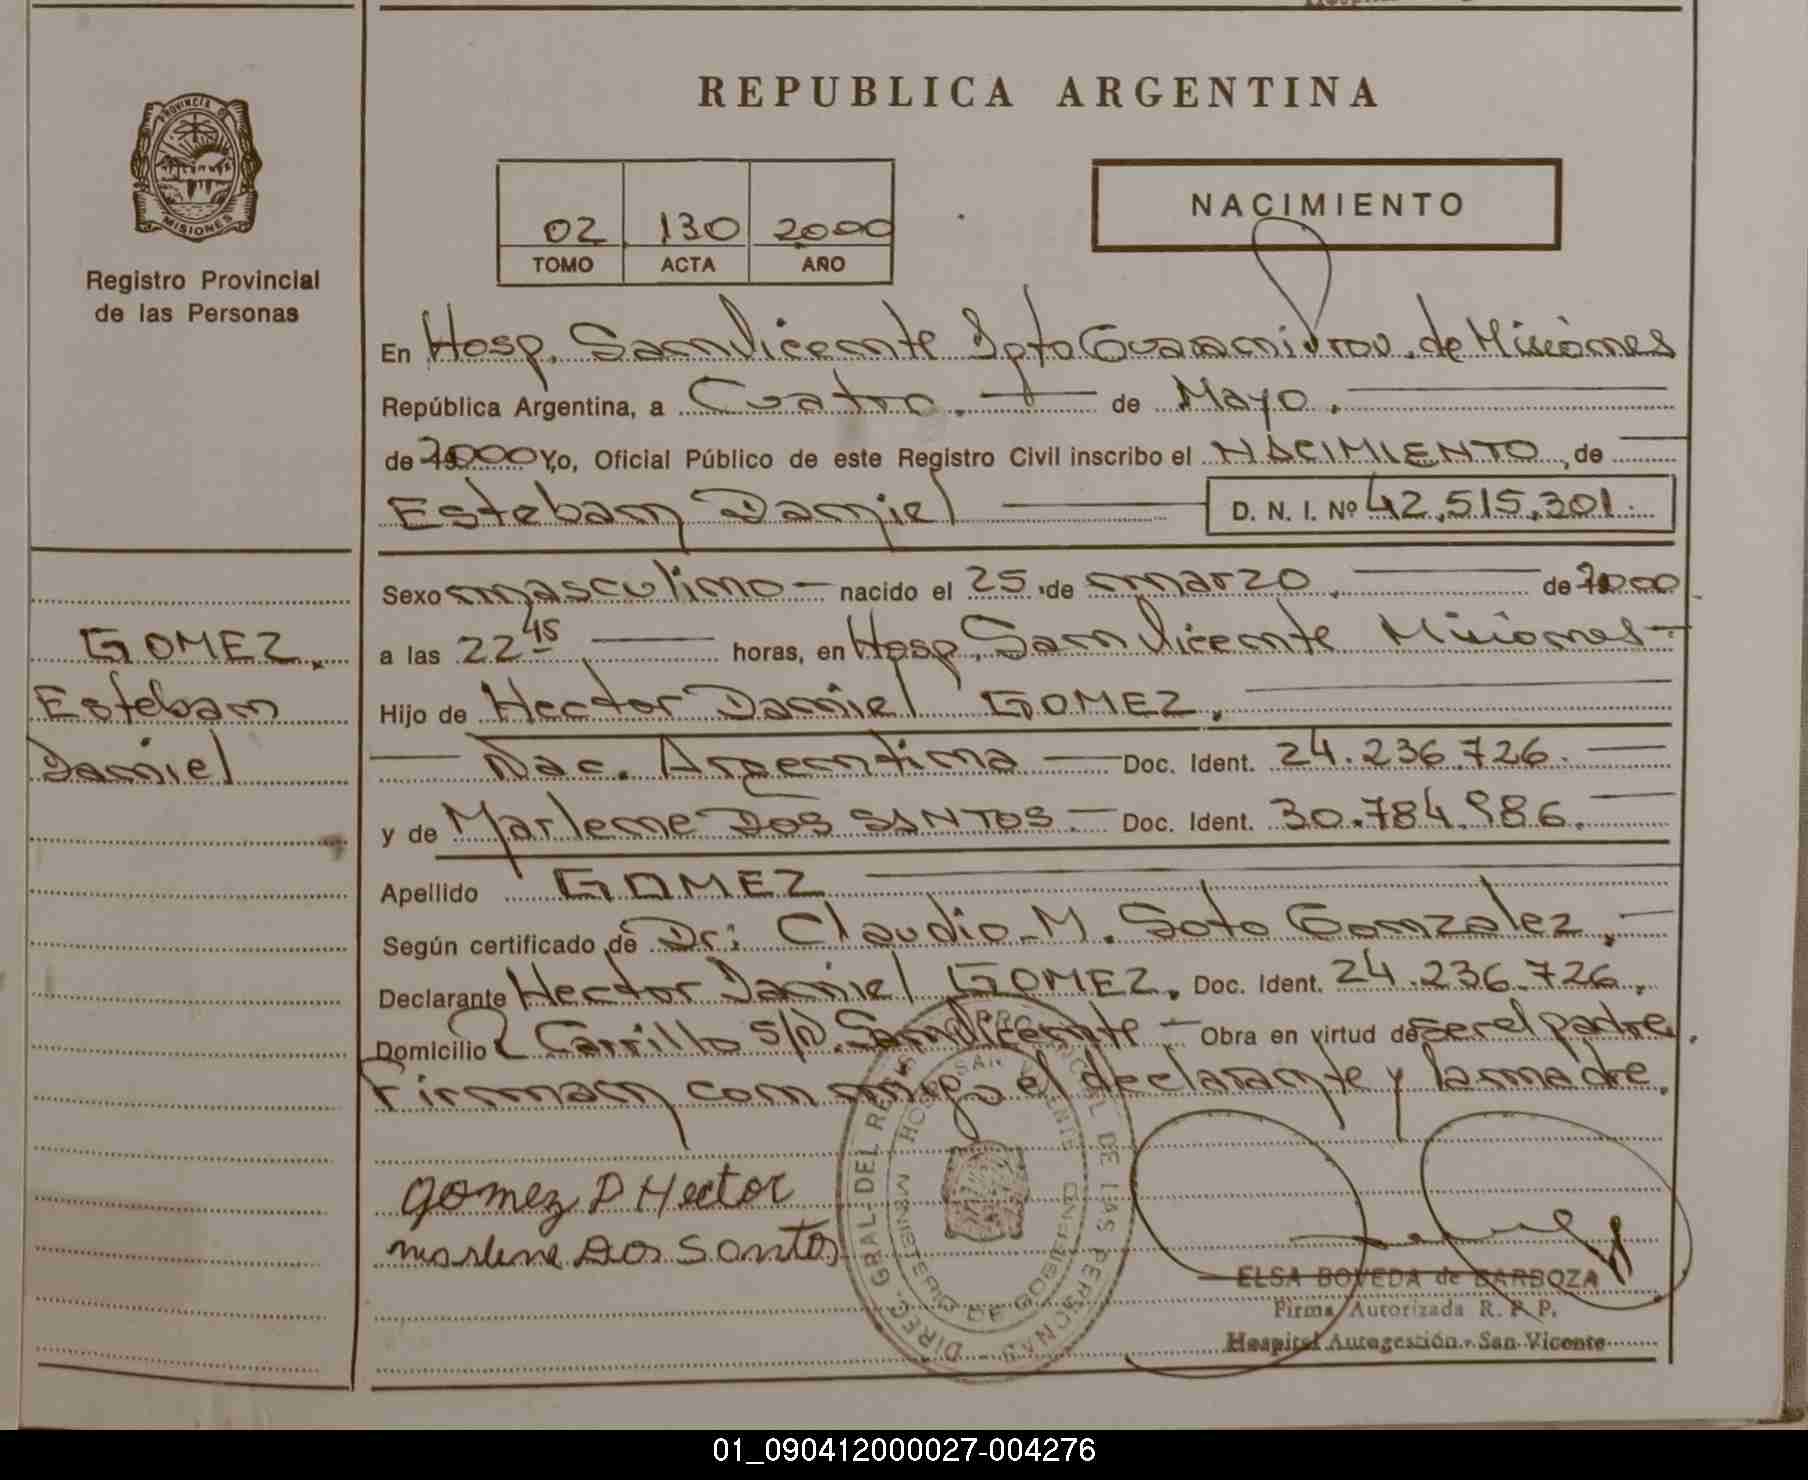 REPUBLICA ARGENTINA
PROVINCIA DE
MISIONES
Registro Provincial
de las Personas
02 130 2000
TOMO ACTA AÑO
NACIMIENTO
En Hosp. San Vicente Dpto Guarani Prov. de Misiones
República Argentina, a Cuatro. de Mayo.
de 2000 Yo, Oficial Público de este Registro Civil inscribo el NACIMIENTO, de
Esteban Daniel D. N. I. Nº 42.515.301.
Sexo masculino nacido el 25 de marzo. de 2000
GOMEZ,
Esteban
Daniel
a las 22 45 horas, en Hosp. San Vicente Misiones
Hijo de Hector Daniel GOMEZ.
Nac. Argentina Doc. Ident. 24.236.726.
y de Marlene DOS SANTOS. Doc. Ident. 30.784.986.
Apellido GOMEZ
Según certificado de Dr: Claudio M. Soto Gonzalez.
Declarante Hector Daniel GOMEZ. Doc. Ident. 24.236.726.
Domicilio Carrillo S/N. San Vicente Obra en virtud de ser el padre.
Firman conmigo el declarante y la madre.
gomez D Hector
marlene Dos Santos
DIREC. GRAL. DEL REG. PROVINCIAL DE LAS PERSONAS
HOSP. SAN VICENTE
MINISTERIO DE GOBIERNO
ELSA BOVEDA de BARBOZA
Firma Autorizada R. P. P.
Hospital Autogestión - San Vicente
01_090412000027-004276